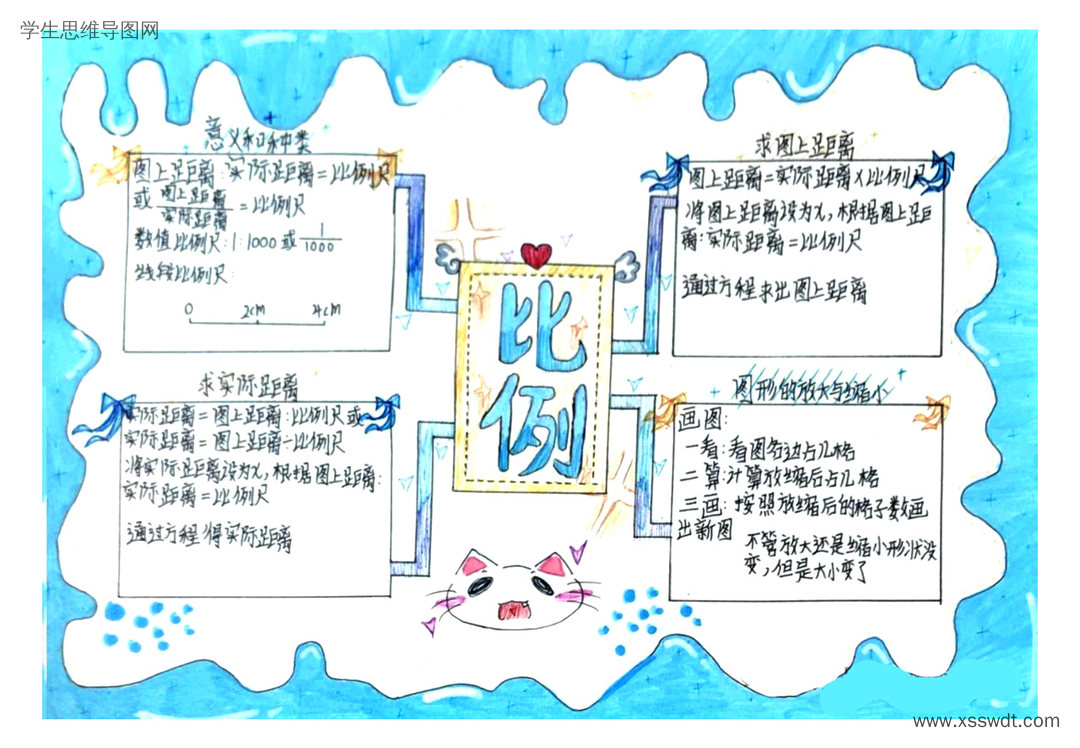 学生思维导图网
意义和种类
图上距离:实际距离=比例尺
或 图上距离/实际距离 = 比例尺
数值比例尺:1:1000或 1/1000
线段比例尺:
0 2cm 4cm
求图上距离
图上距离=实际距离×比例尺
将图上距离设为x,根据图上距
离:实际距离=比例尺
通过方程求出图上距离
比例
求实际距离
实际距离=图上距离:比例尺或
实际距离=图上距离÷比例尺
将实际距离设为x,根据图上距离:
实际距离=比例尺
通过方程得实际距离
图形的放大与缩小
画图:
一看:看图各边占几格
二算:计算放缩后占几格
三画:按照放缩后的格子数画
出新图
不管放大还是缩小形状没
变,但是大小变了
www.xsswdt.com